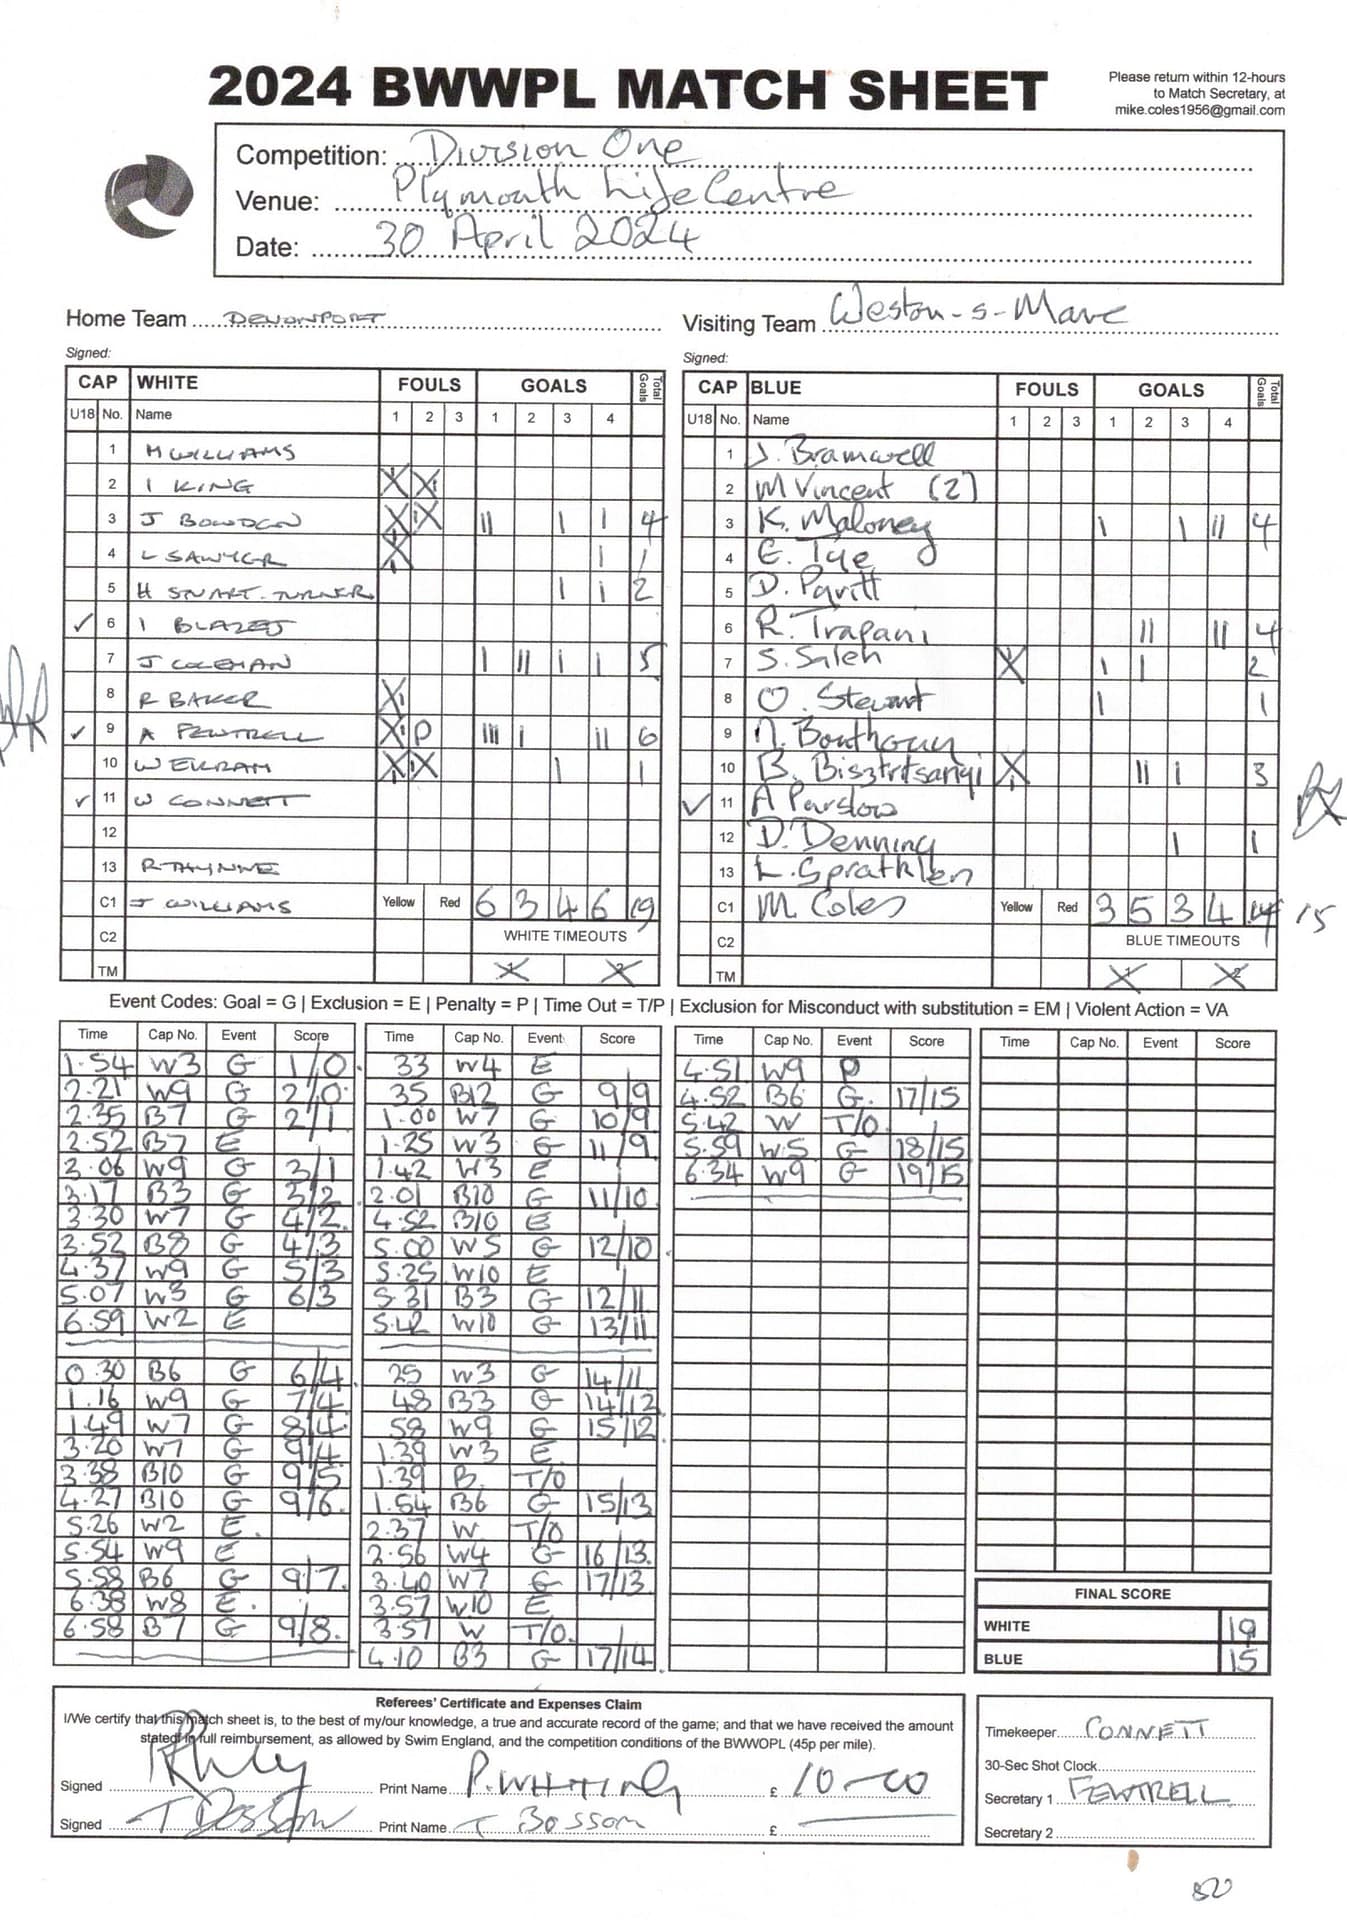 2024 BWWPL MATCH SHEET
Please return within 12-hours
to Match Secretary, at
mike.coles1956@gmail.com
Competition: Division One
Venue: Plymouth Life Centre
Date: 30 April 2024
Home Team DEVONPORT
Visiting Team Weston-s-Mare
Signed:
CAP WHITE FOULS GOALS Total Goals
U18 No. Name 1 2 3 1 2 3 4
1 H WILLIAMS
2 I KING X X
3 J BOWDEN X X II I I 4
4 L SAWYER X I 1
5 H STUART-TURNER I I 2
✓ 6 I BLAZES
7 J COLEMAN I II I I 5
8 R BAKER X
✓ 9 A FEWTRELL X P III I II 6
10 W EKRAM X X I 1
✓ 11 W CONNETT
12
13 R THYNNE
C1 J WILLIAMS Yellow Red 6 3 4 6 19
C2 WHITE TIMEOUTS
TM 1 2
Signed:
CAP BLUE FOULS GOALS Total Goals
U18 No. Name 1 2 3 1 2 3 4
1 J. Bramwell
2 M Vincent (2)
3 K. Maloney I I II 4
4 E. Tye
5 D. Pavitt
6 R. Trapani II II 4
7 S. Saleh X I I 2
8 O. Stewart I 1
9 N. Bouthoun
10 B. Bisztritsanyi X II I 3
✓ 11 A Parslow
12 D. Denning I 1
13 L. Sprathlen
C1 M. Coles Yellow Red 3 5 3 4 14 15
C2 BLUE TIMEOUTS
TM 1 2
Event Codes: Goal = G | Exclusion = E | Penalty = P | Time Out = T/P | Exclusion for Misconduct with substitution = EM | Violent Action = VA
Time Cap No. Event Score
1.54 W3 G 1/0
2.21 W9 G 2/0
2.35 B7 G 2/1
2.52 B7 E
3.06 W9 G 3/1
3.17 B3 G 3/2
3.30 W7 G 4/2
3.52 B8 G 4/3
4.37 W9 G 5/3
5.07 W3 G 6/3
6.59 W2 E
0.30 B6 G 6/4
1.16 W9 G 7/4
1.49 W7 G 8/4
3.20 W7 G 9/4
3.38 B10 G 9/5
4.27 B10 G 9/6
5.26 W2 E
5.54 W9 E
5.58 B6 G 9/7
6.38 W8 E
6.58 B7 G 9/8
Time Cap No. Event Score
33 W4 E
35 B12 G 9/9
1.00 W7 G 10/9
1.25 W3 G 11/9
1.42 W3 E
2.01 B10 G 11/10
4.52 B10 E
5.00 W5 G 12/10
5.25 W10 E
5.31 B3 G 12/11
5.42 W10 G 13/11
25 W3 G 14/11
48 B3 G 14/12
58 W9 G 15/12
1.39 W3 E
1.39 B T/O
1.54 B6 G 15/13
2.37 W T/O
2.56 W4 G 16/13
3.40 W7 G 17/13
3.57 W10 E
3.57 W T/O
4.10 B3 G 17/14
Time Cap No. Event Score
4.51 W9 P
4.52 B6 G 17/15
5.42 W T/O
5.59 W5 G 18/15
6.34 W9 G 19/15
Time Cap No. Event Score
FINAL SCORE
WHITE 19
BLUE 15
Referees' Certificate and Expenses Claim
I/We certify that this match sheet is, to the best of my/our knowledge, a true and accurate record of the game; and that we have received the amount
stated in full reimbursement, as allowed by Swim England, and the competition conditions of the BWWOPL (45p per mile).
Signed Print Name P. WHITING £ 10-00
Signed T Bossom Print Name T Bossom £
Timekeeper CONNETT
30-Sec Shot Clock
Secretary 1 FEWTRELL
Secretary 2